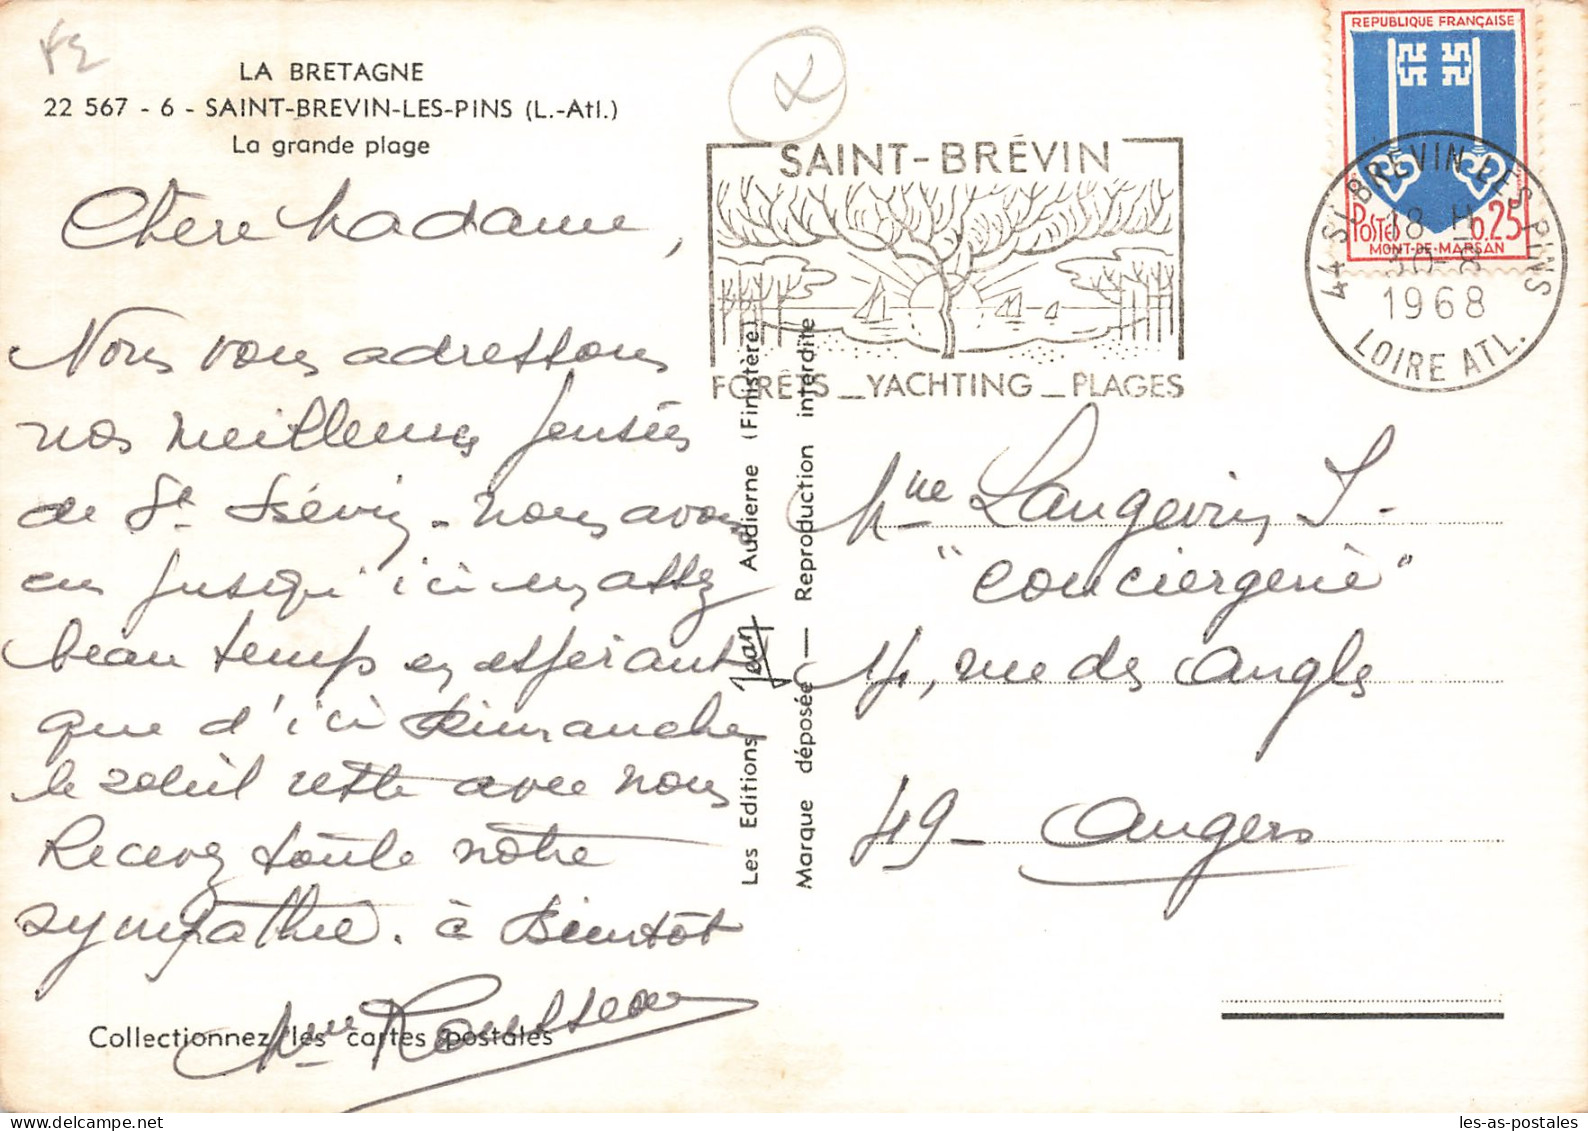 LA BRETAGNE
22 567 - 6 - SAINT-BREVIN-LES-PINS (L.-Atl.)
La grande plage
Chère Madame,
Nous vous adressons
nos meilleures pensées
de St Brévin. nous avons
eu jusqu'ici un assez
beau temps en espérant
que d'ici Dimanche
le soleil reste avec nous
Recevez toute notre
sympathie. à Bientôt
Mme Rousseau
Collectionnez les cartes postales
Les Editions Jean Audierne (Finistère)
Marque déposée — Reproduction interdite
SAINT-BRÉVIN
FORÊTS _ YACHTING _ PLAGES
REPUBLIQUE FRANÇAISE
POSTES 0,25
MONT-DE-MARSAN
44 ST BREVIN LES PINS
18 H
30-8
1968
LOIRE ATL.
Mme Langevin J.
"conciergerie"
14, rue des Angles
49 - Angers
les-as-postales